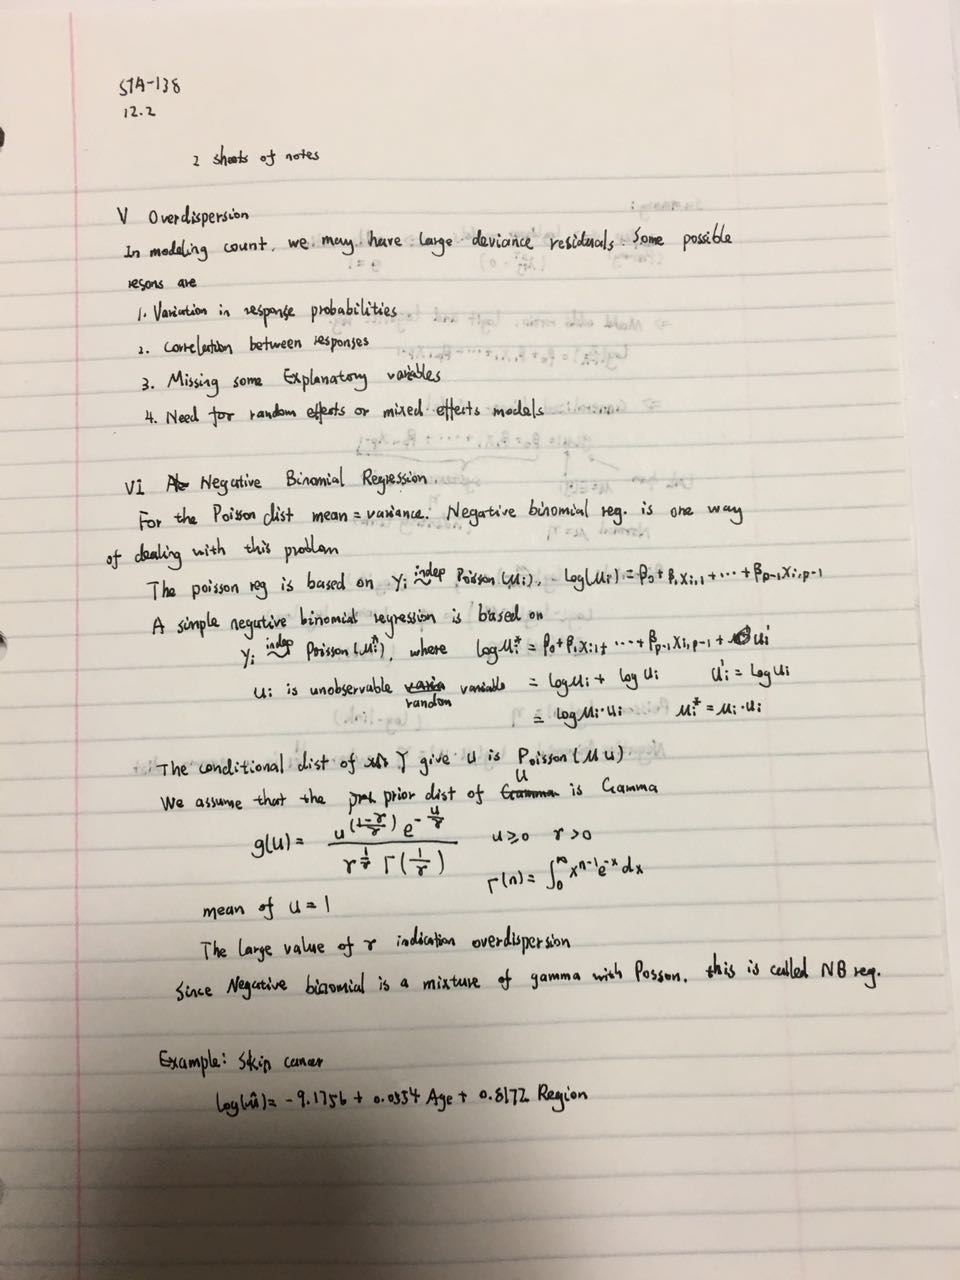 STA-138
12.2
2 sheets of notes
V Overdispersion
In modeling count, we may have large deviance residuals. Some possible
resons are
1. Variation in response probabilities
2. Correlation between responses
3. Missing some Explanatory variables
4. Need for random effects or mixed effects models
VI Negative Binomial Regression.
For the Poisson dist mean = variance. Negative binomial reg. is one way
of dealing with this problem
The poisson reg is based on Yi indep Poisson (μi), Log(μi) = β0 + β1Xi,1 + ··· + βp-1Xi,p-1
A simple negative binomial regression is based on
Yi indep Poisson (μi*), where log μi* = β0 + β1Xi1 + ··· + βp-1Xi,p-1 + ui'
ui is unobservable random variable = log μi + log ui ui' = log ui
= log μi·ui μi* = μi·ui
The conditional dist of Y give u is Poisson (μu)
We assume that the prior dist of u is Gamma
g(u) = u^((1-r)/r) e^(-u/r) / (r^(1/r) Γ(1/r)) u ≥ 0 r > 0
Γ(n) = ∫0^∞ x^(n-1) e^(-x) dx
mean of u = 1
The large value of r indication overdispersion
Since Negative binomial is a mixture of gamma with Posson, this is called NB reg.
Example: Skin cancer
log(μ̂) = -9.1756 + 0.0554 Age + 0.8172 Region